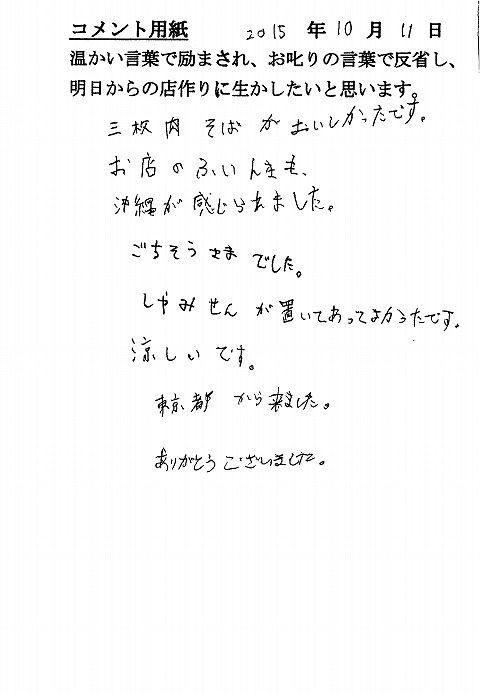 コメント用紙 2015 年 10 月 11 日
温かい言葉で励まされ、お叱りの言葉で反省し、
明日からの店作りに生かしたいと思います。
三枚肉そばがおいしかったです。
お店のふいんきも、
沖縄が感じられました。
ごちそうさまでした。
しゃみせんが置いてあってよかったです。
涼しいです。
東京都から来ました。
ありがとうございました。